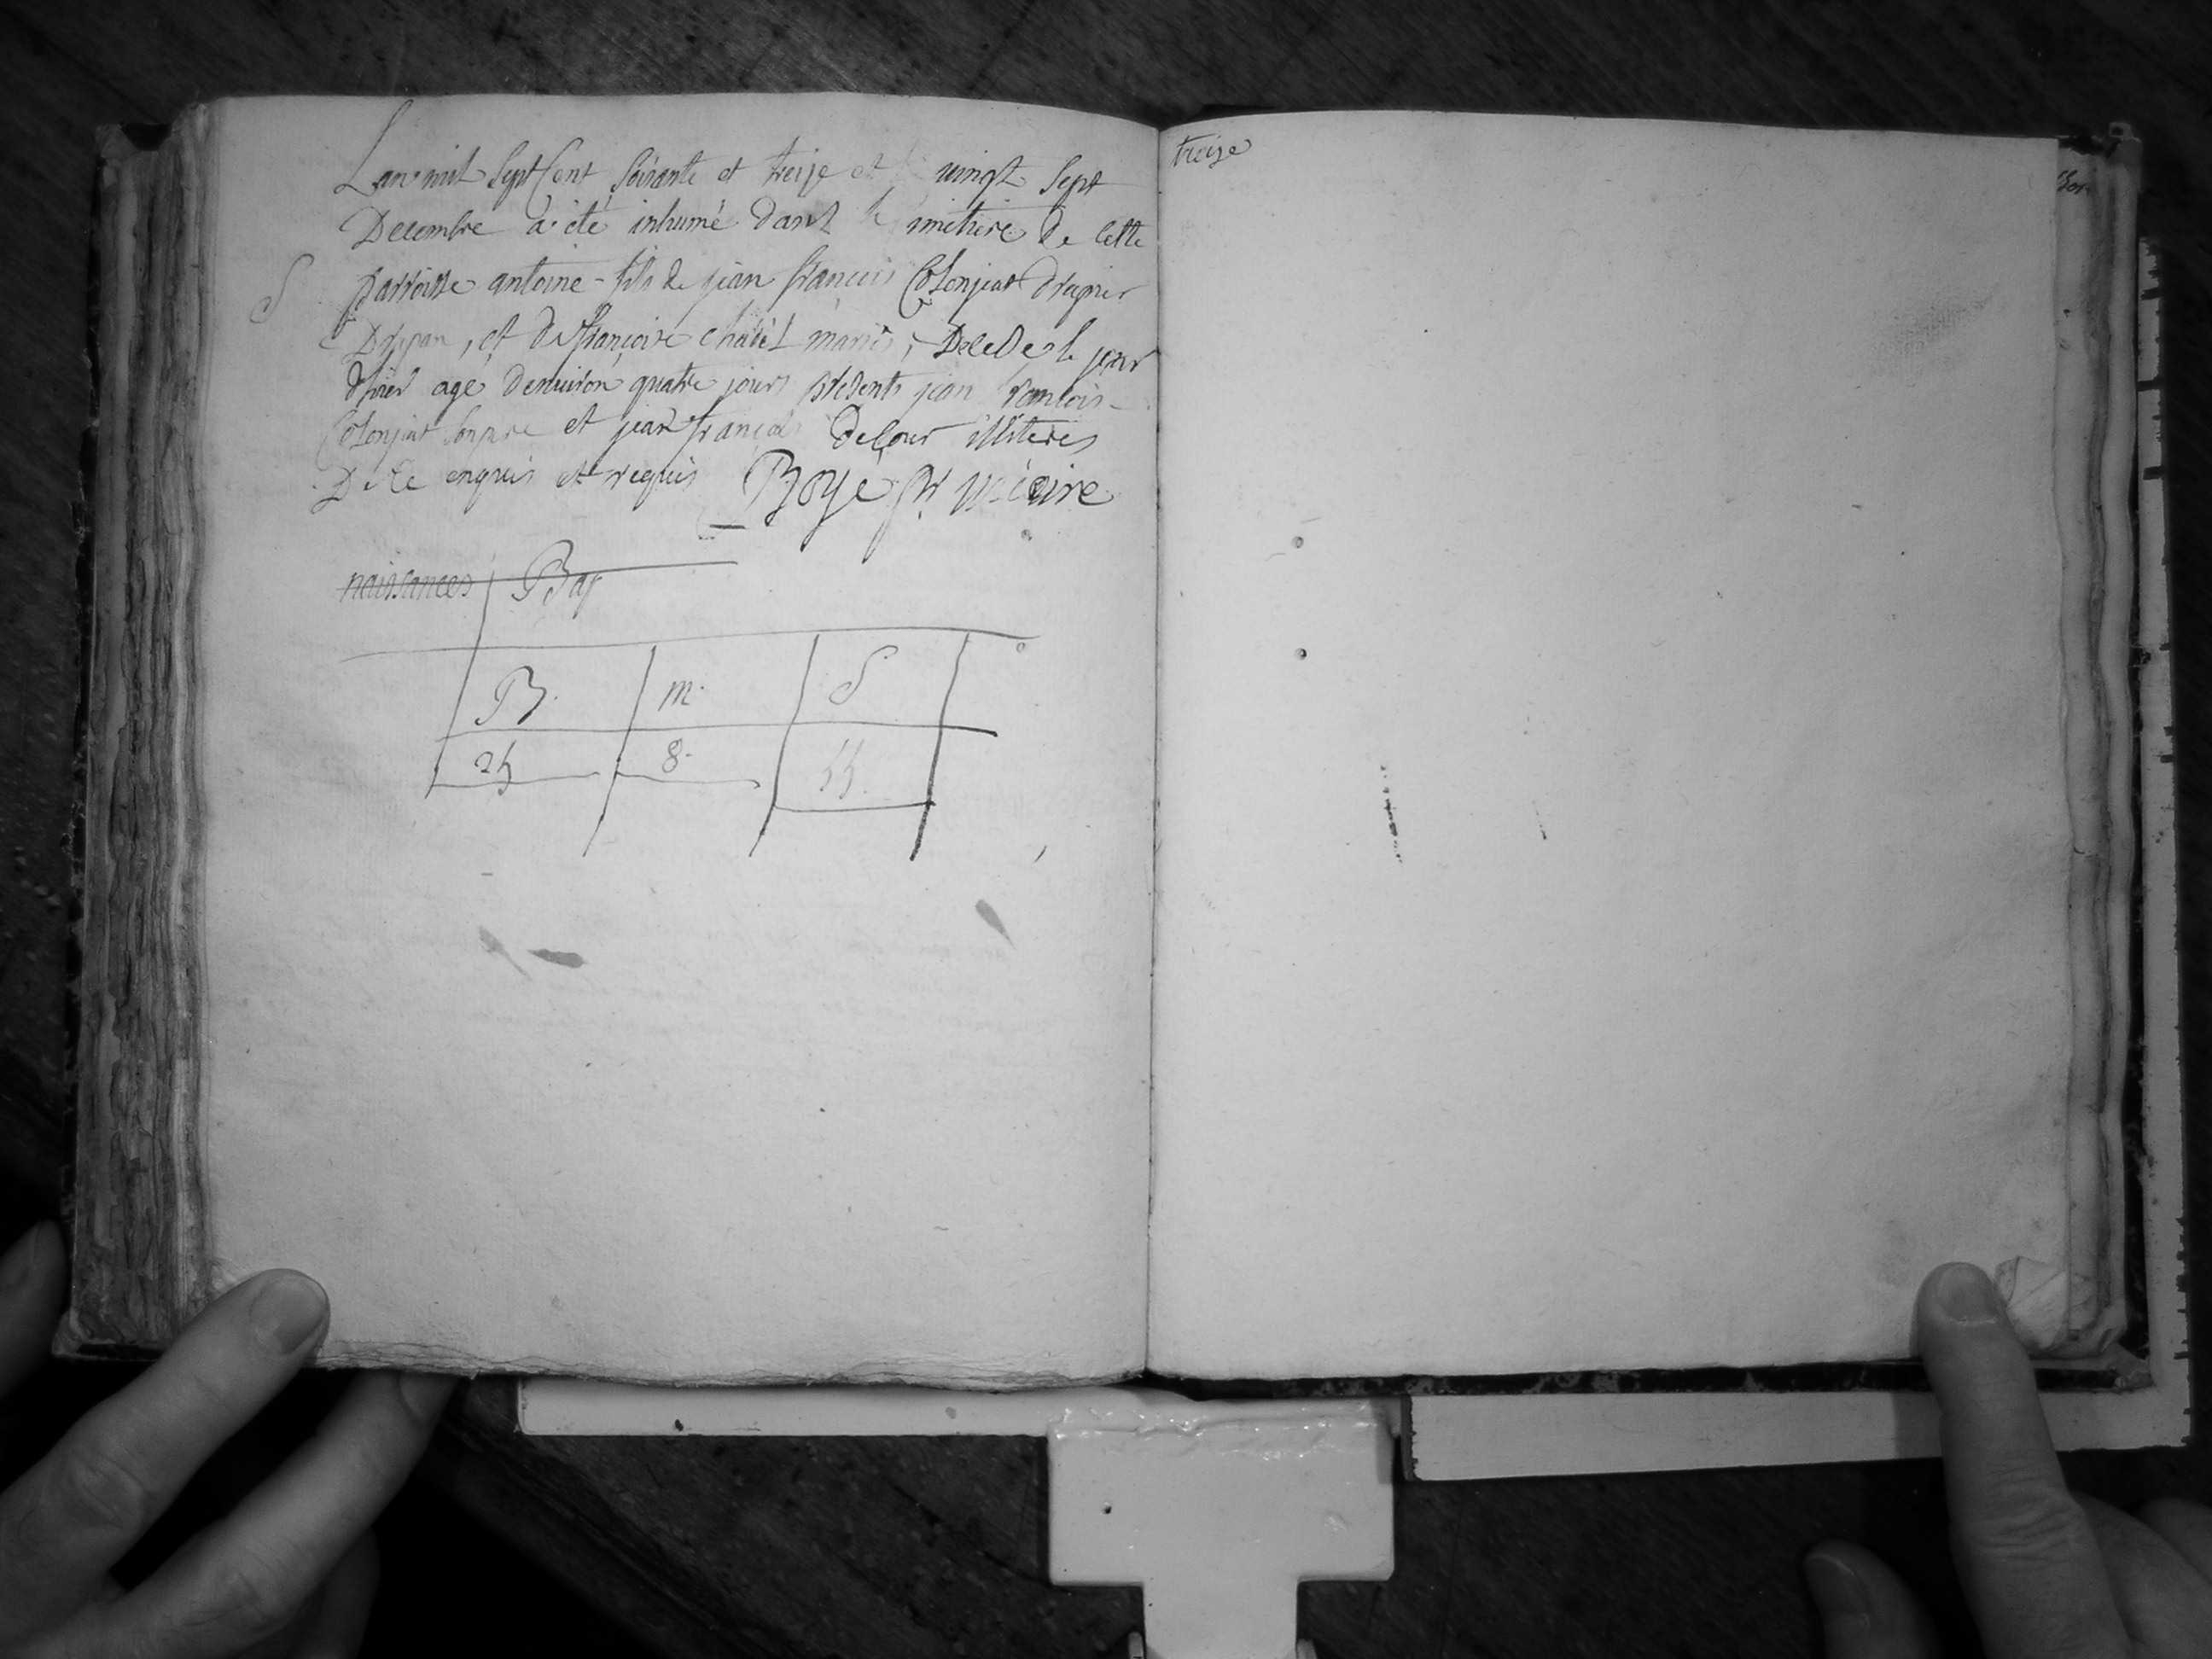 L'an mil Sept Cent Soixante et treize et le vingt Sept
Decembre a été inhumé dans le cimetiere de Cette
S
parroisse antoine fils de jean françois Colonjeat
et de françoise mariés, Decedé le jour
d'hier agé denviron quatre jours présents jean francois
Colonjat Son pere et jean françois Delour illiteres
De Ce enquis et requis Boyé ptr vicaire
naissances Bap
B. m. S
25 8.
treize